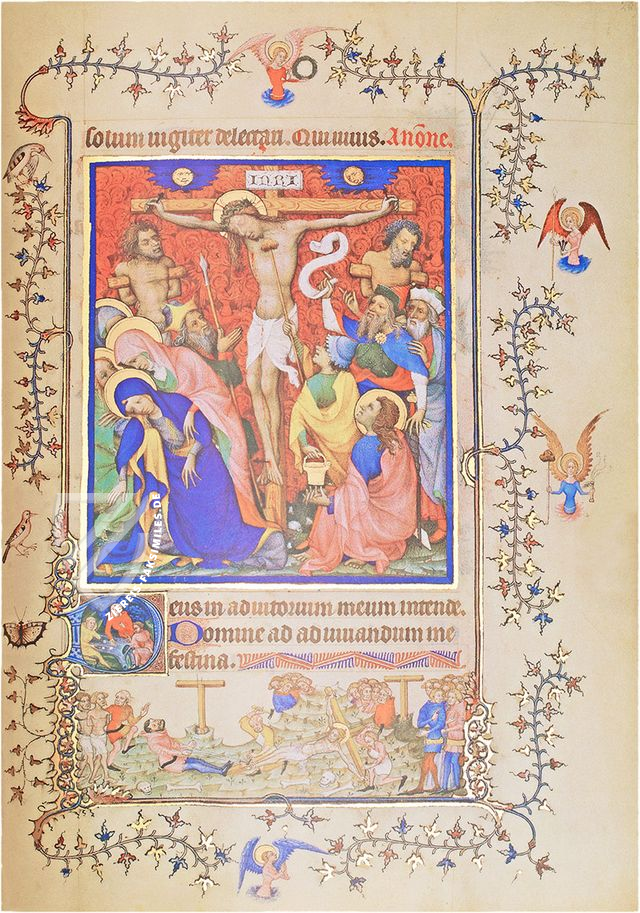 solum iugiter delectari. Qui vivis. A none.
INRI
Deus in adiutorium meum intende.
Domine ad adiuvandum me
festina.
FAKSIMILES.DE